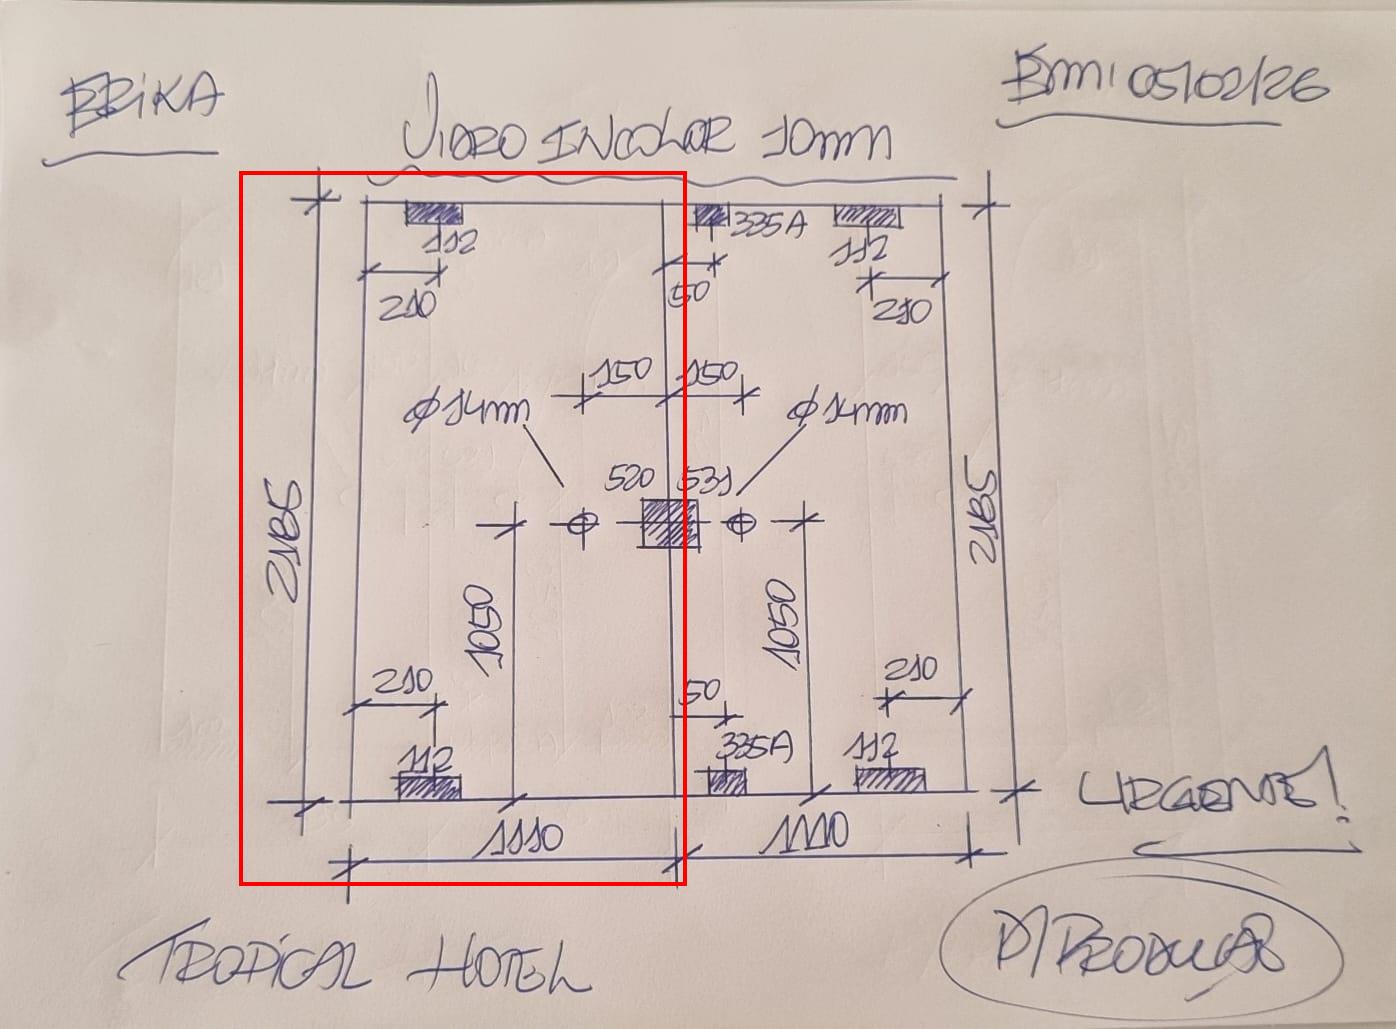 ERIKA
Em: 05/02/26
VIDRO INCOLOR 10mm
112
335A
112
210
50
210
150
150
Ø14mm
Ø14mm
520
531
2185
2185
1050
1050
210
50
210
112
335A
112
1110
1110
URGENTE!
P/ PRODUÇÃO
TROPICAL HOTEL